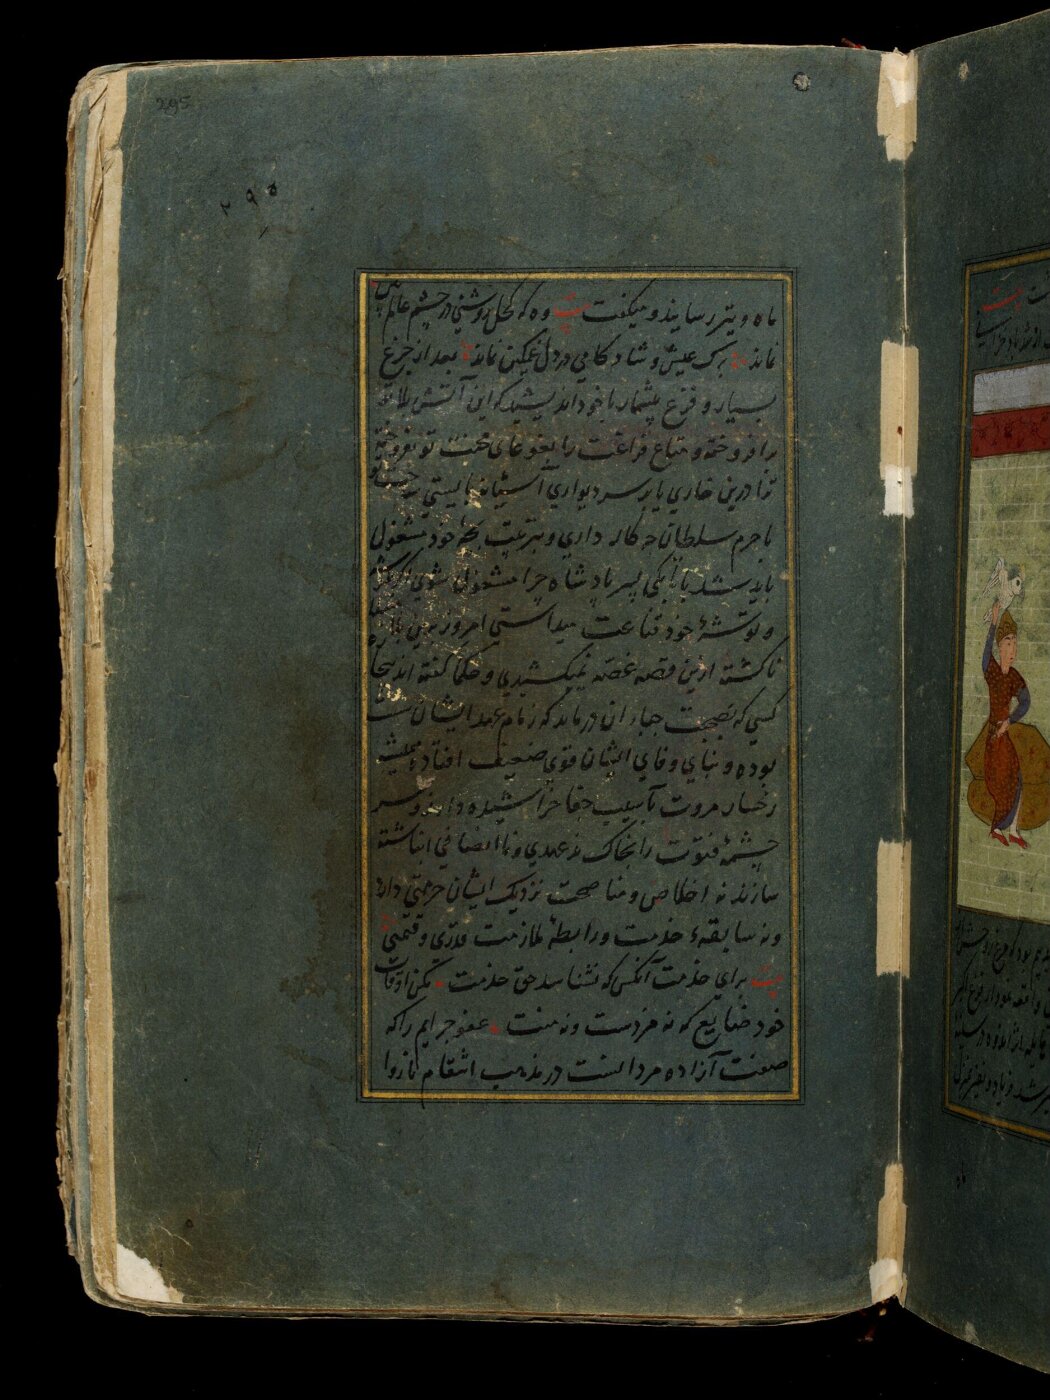 295
۲۹۵
ماه و تیر رسانید و میگفت بیت وه که کحل روشنی در چشم عالم
نماند برک عیش و شادکامی در دل غمکین نماند بعد از جزع
بسیار و فزع بیشمار با خود اندیشید که این آتش بلا تو
برافروختهٔ و متاع فراغت را بغوغای محنت تو بفروختهٔ
ترا در بن خاری یا بر سر دیواری آشیانه بایستی
با حرم سلطان چه کار داری و بتربیت بچهٔ خود مشغول
باید شد باتابکی پسر پادشاه چرا مشغول شوی
و توشهٔ خود قناعت میداستی امروز برین بلا
نا کشته ازین قصه غصه نمیکشیدی و حکما کفته اند
کسی که بصحبت جباران درماند که زمام عهد ایشان
بوده و بنای وفای ایشان قوی ضعیف افتاده همیشه
رخسار مروت بآسیب جفا خراشیده دارند و سر
چشمهٔ فتوت را بخاک بدعهدی و ناانصافی انباشته
سازند نه اخلاص و مناصحت نزدیک ایشان حرمتی دارد
ونه سابقهٔ خدمت و رابطهٔ ملازمت قدری و قیمتی
بیت برای خدمت آنکس که نشناسد حق خدمت مکن اوقات
خود ضایع که نه مزدست و نه منت عفو جرایم را که
صفت آزاده مردانست در مذهب انتقام ناروا